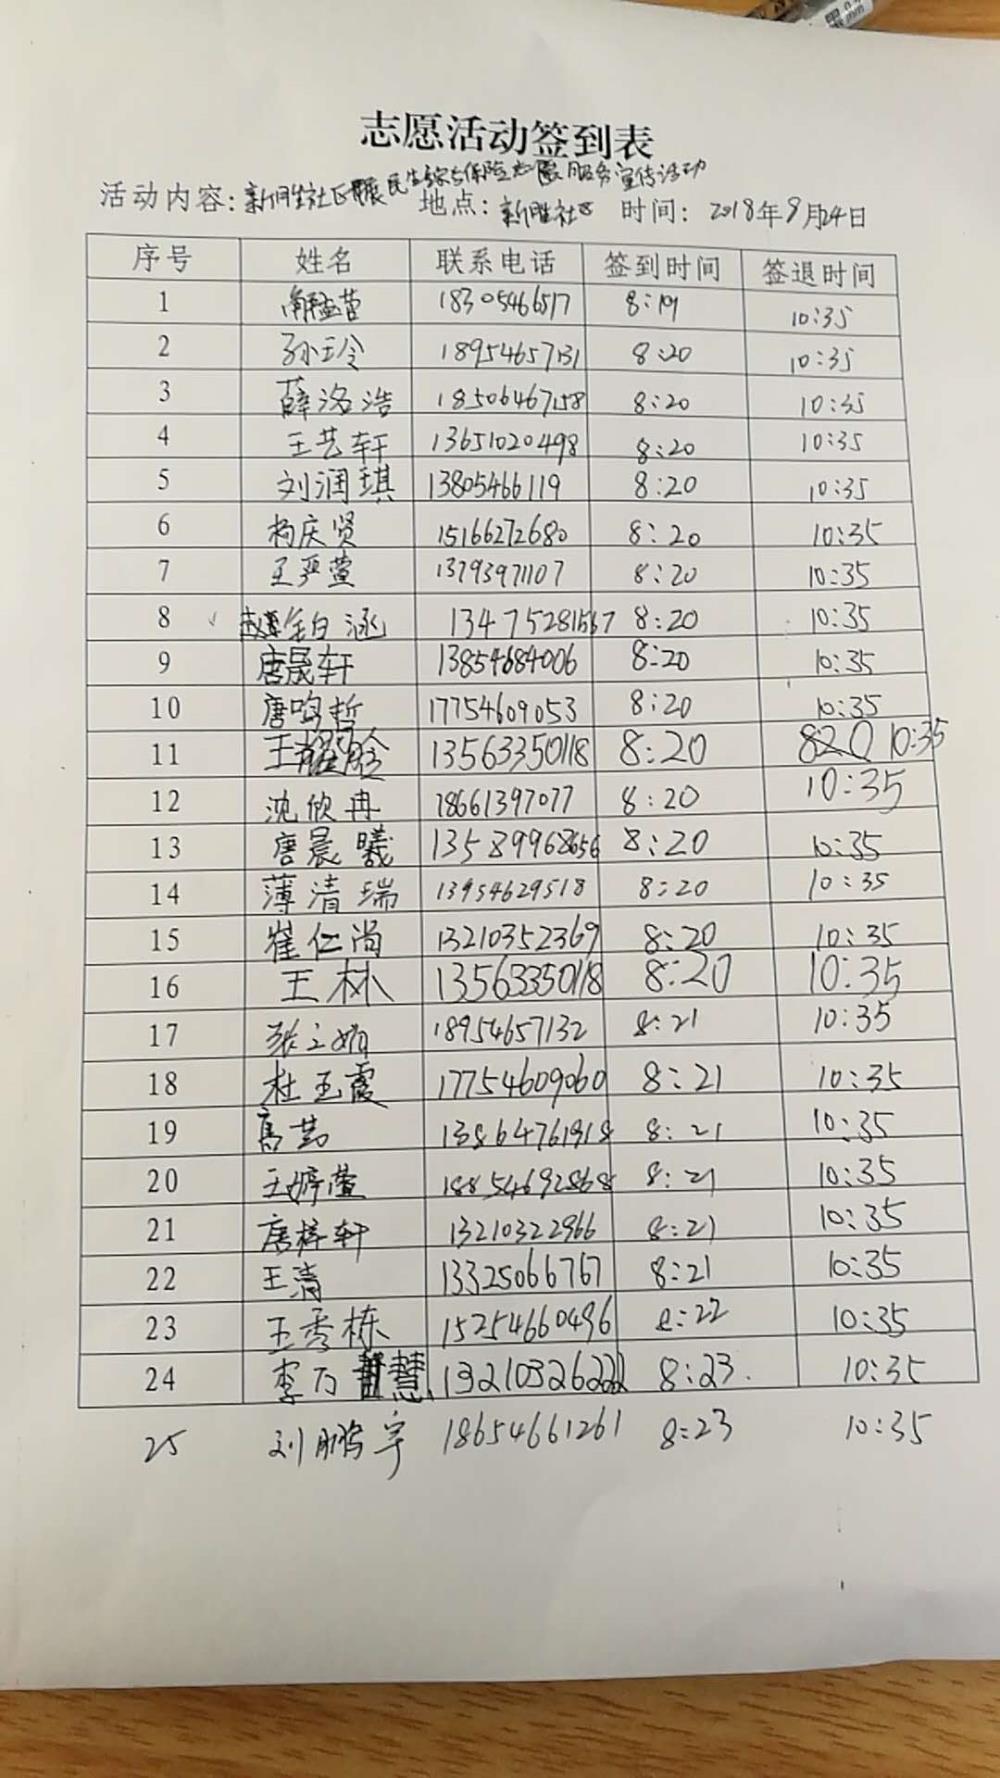 志愿活动签到表
活动内容: 新胜社区开展民生综合保险志愿服务宣传活动 地点: 新胜社区 时间: 2018年9月24日
序号 姓名 联系电话 签到时间 签退时间
1 18305466517 8:19 10:35
2 孙玉玲 18954657131 8:20 10:35
3 薛洛浩 18506467158 8:20 10:35
4 王艺轩 13651020498 8:20 10:35
5 刘润琪 13805466119 8:20 10:35
6 杨庆贤 15166272680 8:20 10:35
7 王严萱 13793971107 8:20 10:35
8 涵 13475281567 8:20 10:35
9 唐晟轩 13854684006 8:20 10:35
10 唐鸣哲 17754609053 8:20 10:35
11 王 13563350118 8:20 820 10:35
12 沈欣冉 18661397077 8:20 10:35
13 唐晨曦 13589968656 8:20 10:35
14 薄清瑞 13954629518 8:20 10:35
15 崔仁尚 13210352369 8:20 10:35
16 王林 13563350118 8:20 10:35
17 张立娟 18954657132 8:21 10:35
18 杜玉霞 17754609060 8:21 10:35
19 高芸 13864761918 8:21 10:35
20 王婷萱 18854692868 8:21 10:35
21 唐梓轩 13210322966 8:21 10:35
22 王清 13325066767 8:21 10:35
23 王秀栋 15254660496 8:22 10:35
24 李乃慧 13210326222 8:23. 10:35
25 刘鹏宇 18654661261 8:23 10:35